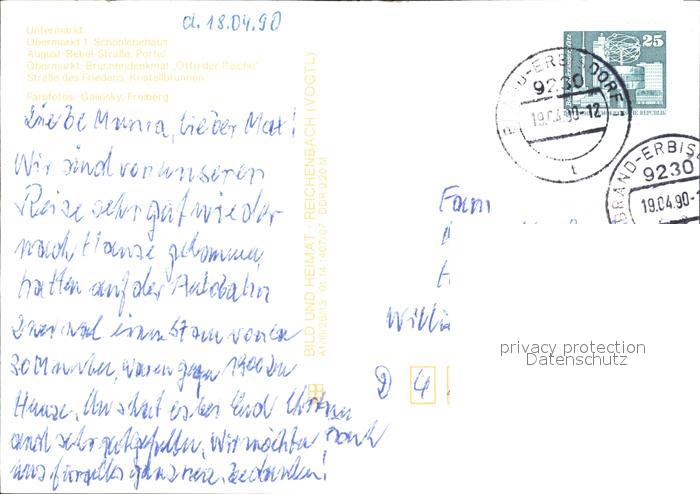 d. 18.04.90
Untermarkt
Obermarkt 1, Schönlebehaus
August-Bebel-Straße, Portal
Obermarkt, Brunnendenkmal „Otto der Reiche"
Straße des Friedens, Kristallbrunnen
Farbfotos: Galinsky, Freiberg
Liebe Mama, lieber Max!
Wir sind von unseren
Reise sehr gut wieder
nach Hause gekommen,
hatten auf der Autobahn
Zweimal einen Stau von
30 Minuten, waren gegen 1900 zu
Hause. Uns hat es bei Euch
und sehr gut gefallen, wir möchten
uns für alles ganz bedanken!
BILD UND HEIMAT · REICHENBACH (VOGTL)
DDR 0,20 M
25
BRAND-ERBISDORF 1
9230
19.04.90-12
t
BRAND-ERBIS
9230
19.04.90-1
Fam
Willi
D 4
privacy protection
Datenschutz